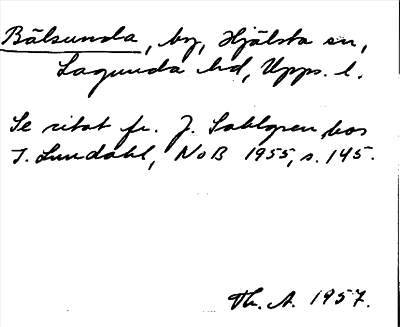 Bälsunda, by, Hjälsta sn,
Lagunda hd, Upps. l.
Se citat fr. J. Sahlgren hos
I. Lundahl, NoB 1955, s. 145.
Th. A. 1957.